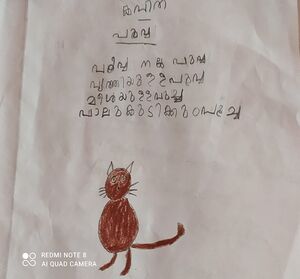 കവിത
പൂച്ച
പൂച്ച നല്ല പൂച്ച
വൃത്തിയുള്ള പൂച്ച
പാലു കുടിക്കും പൂച്ച
REDMI NOTE 8
AI QUAD CAMERA